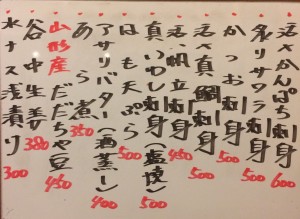 活〆かんぱち刺身 600
炙りサワラ刺身 500
かつお刺身 500
活〆真鯛刺身 500
活〆帆立刺身 450
真いわし刺身(塩焼) 500
はも天ぷら 500
アサリバター(酒蒸し) 400
あら煮 350
山形産だだちゃ豆 450
谷中生姜 380
水ナス浅漬け 300